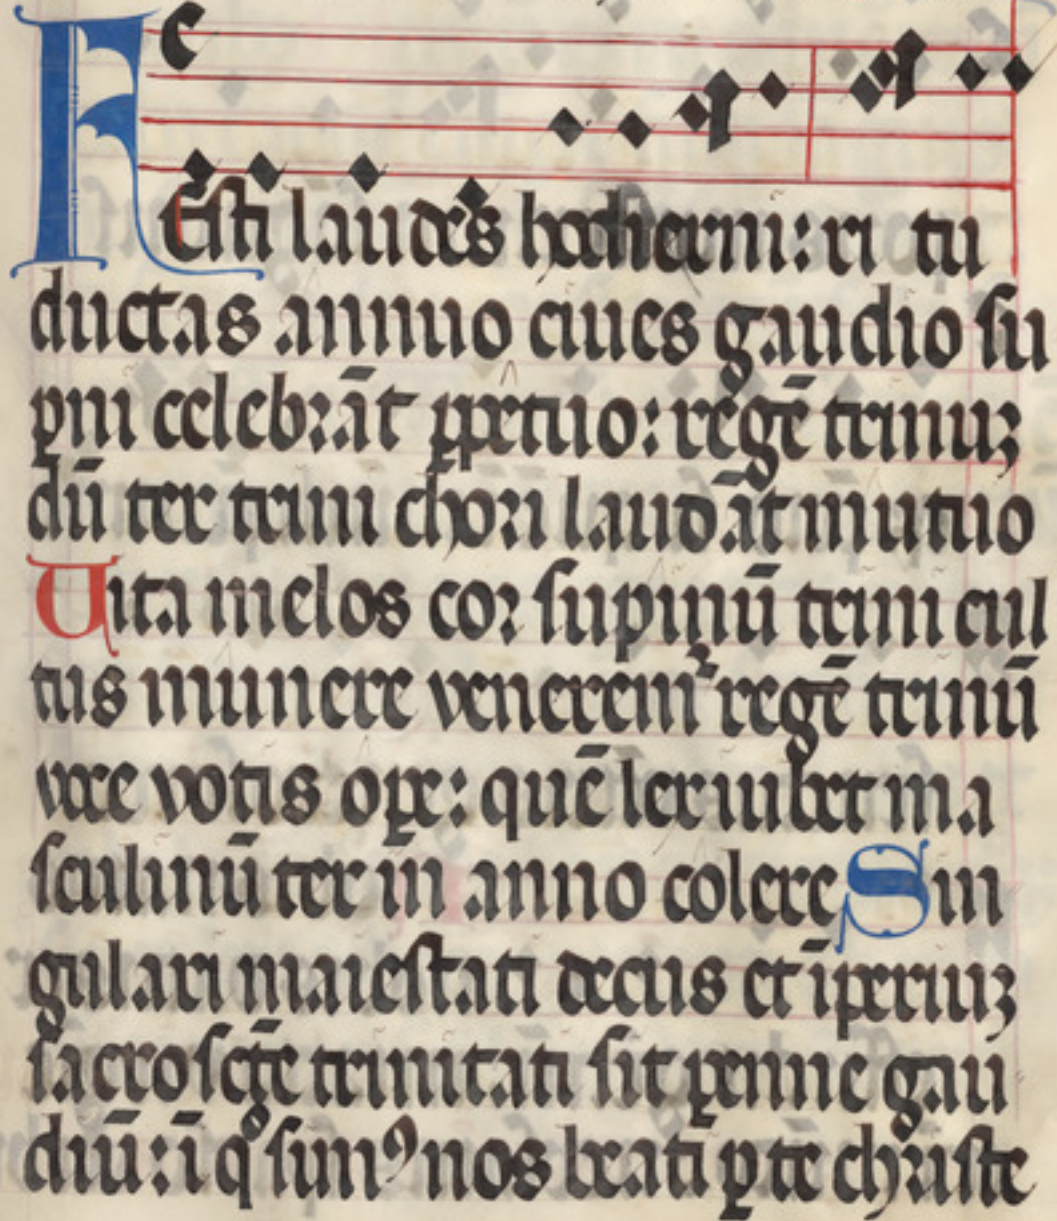 FEsti laudes hodierni: ri tu
ductas annuo ciues gaudio su
pni celebrāt ꝑpetuo: regē trinuꝫ
dū ter trini chori laudāt mutuo
Uita melos cor supinū trini cul
tus munere veneremᷣ regē trinū
voce votis oꝑe: quē lex iubet ma
sculinū ter in anno colere Sin
gulari maiestati decus et īperiuꝫ
sacroscē trinitati sit ꝑenne gau
diū: ī q̄ sumꝰ nos beati ꝑ te christe